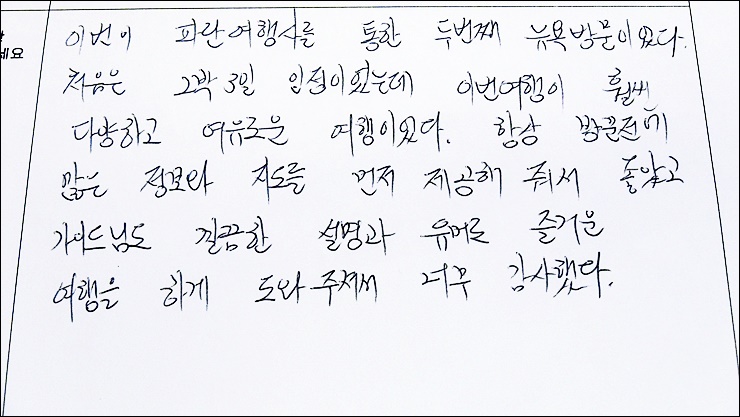 세요
이번이 파란여행사를 통한 두번째 뉴욕방문이었다.
처음은 2박 3일 일정이었는데 이번여행이 훨씬
다양하고 여유로운 여행이었다. 항상 방문전에
많은 정보와 지도를 먼저 제공해 줘서 좋았고
가이드님도 깔끔한 설명과 유머로 즐거운
여행을 하게 도와주셔서 너무 감사했다.